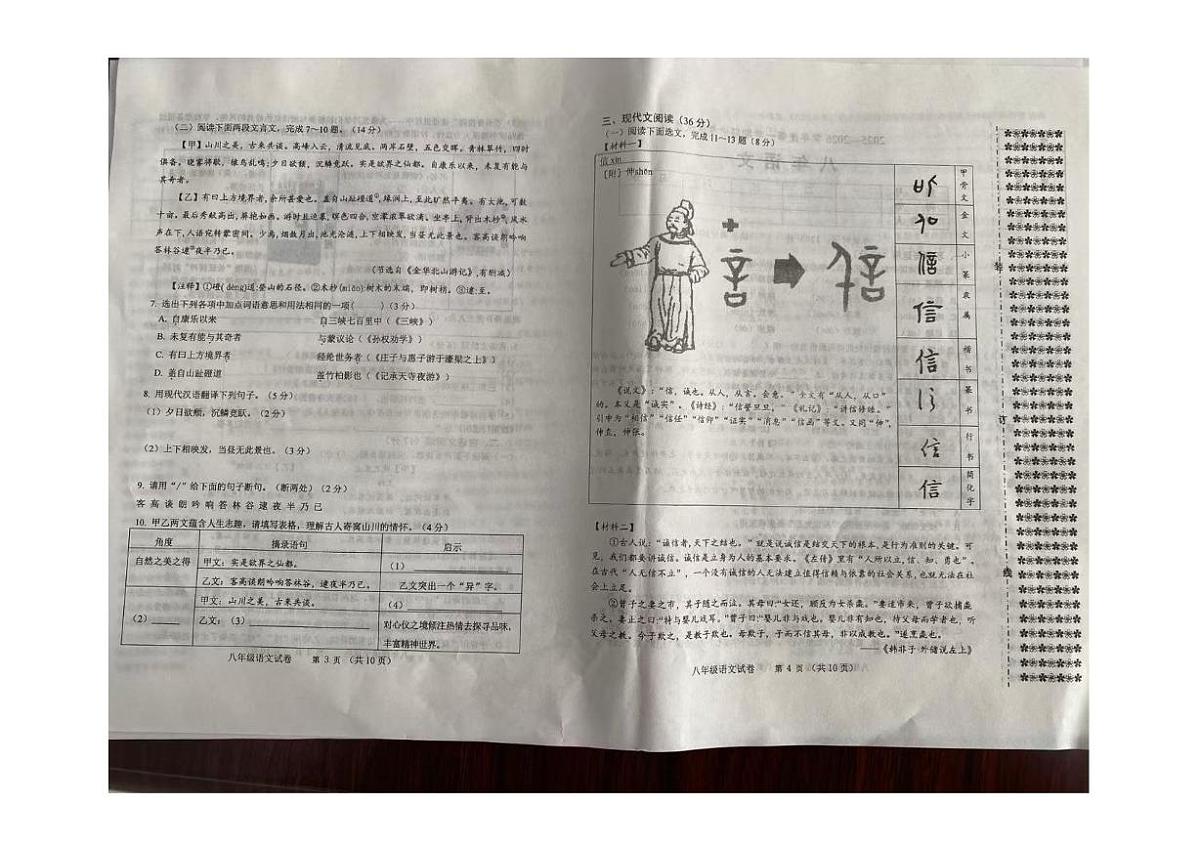 (二)阅读下面两段文言文,完成7～10题。(14分)
【甲】山川之美,古来共谈。高峰入云,清流见底。两岸石壁,五色交晖。青林翠竹,四时
俱备。晓雾将歇,猿鸟乱鸣;夕日欲颓,沉鳞竞跃。实是欲界之仙都。自康乐以来,未复有能与
其奇者。
【乙】有曰上方境界者,余所甚爱也。盖自山趾磴道①,缘涧上,至此旷然平夷。有大池,可数
十亩。最后秀献高出,屏拖如画。游时且迫暮,暝色四合,空濛浓翠欲滴。坐亭上,背出木杪②,风水
声在下,人语宛转蒙密间。少焉,烟敛月出,池光沧涟,上下相映发,当昼无此景也。客高谈朗吟响
答林谷逮③夜半乃已。
(节选自《金华北山游记》,有删减)
【注释】①磴(dèng)道:登山的石径。②木杪(miǎo):树木的末端,即树梢。③逮:至。
7. 选出下列各项中加点词语意思和用法相同的一项( )(3分)
A. 自康乐以来 自三峡七百里中(《三峡》)
B. 未复有能与其奇者 与蒙议论(《孙权劝学》)
C. 有曰上方境界者 经纶世务者(《庄子与惠子游于濠梁之上》)
D. 盖自山趾磴道 盖竹柏影也(《记承天寺夜游》)
8. 用现代汉语翻译下列句子。(5分)
(1)夕日欲颓,沉鳞竞跃。(2分)
(2)上下相映发,当昼无此景也。(3分)
9. 请用“/”给下面的句子断句。(断两处)(2分)
客 高 谈 朗 吟 响 答 林 谷 逮 夜 半 乃 已
10. 甲乙两文蕴含人生志趣,请填写表格,理解古人寄寓山川的情怀。(4分)
角度 摘录语句 启示
自然之美之得 甲文:实是欲界之仙都。 (1)
乙文:客高谈朗吟响答林谷,逮夜半乃已。 乙文突出一个“异”字。
(2) 甲文:山川之美,古来共谈。 (4)
乙文:(3) 对心仪之境倾注热情去探寻品味,
丰富精神世界。
八年级语文试卷 第 3 页 (共10页)
三、现代文阅读(36分)
(一)阅读下面选文,完成11～13题(8分)
【材料一】
信 xìn
[附] 伸shēn
言
信
甲骨文
金文
小篆
隶属
楷书
草书
行书
简化字
信
《说文》:“信,诚也。从人,从言。会意。”金文有“从人,从口”
的。本义是“诚实”。《诗经》:“信誓旦旦。”《礼记》:“讲信修睦。”
引申为“相信”“信任”“信仰”“证实”“消息”“信函”等义。又同“伸”,
伸直,伸张。
【材料二】
①古人说:“诚信者,天下之结也。”就是说诚信是结交天下的根本,是行为准则的关键。可
见,我们都要讲诚信。诚信是立身为人的基本要求。《左传》里有“人所以立,信、知、勇也”。
在古代“人无信不立”,一个没有诚信的人无法建立值得信赖与依靠的社会关系,也就无法在社
会上立足。
②曾子之妻之市,其子随之而泣。其母曰:“女还,顾反为女杀彘。”妻适市来,曾子欲捕彘
杀之。妻止之曰:“特与婴儿戏耳。”曾子曰:“婴儿非与戏也。婴儿非有知也,待父母而学者也,听
父母之教。今子欺之,是教子欺也。母欺子,子而不信其母,非以成教也。”遂烹彘也。
——《韩非子·外储说左上》
八年级语文试卷 第 4 页 (共10页)
装
订
线